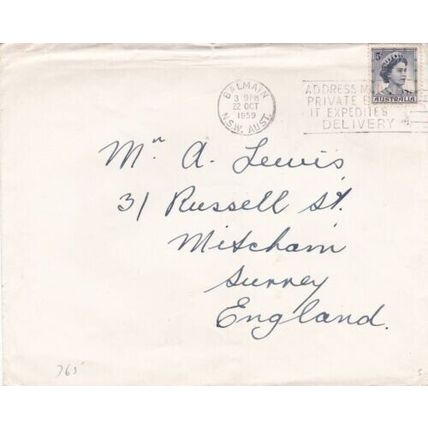 BALMAIN
22 OCT
1959
N.S.W. AUST.
ADDRESS
PRIVATE
IT EXPEDITES
DELIVERY
5D
AUSTRALIA
Mr A. Lewis,
31 Russell St.
Mitcham
Surrey
England.
765